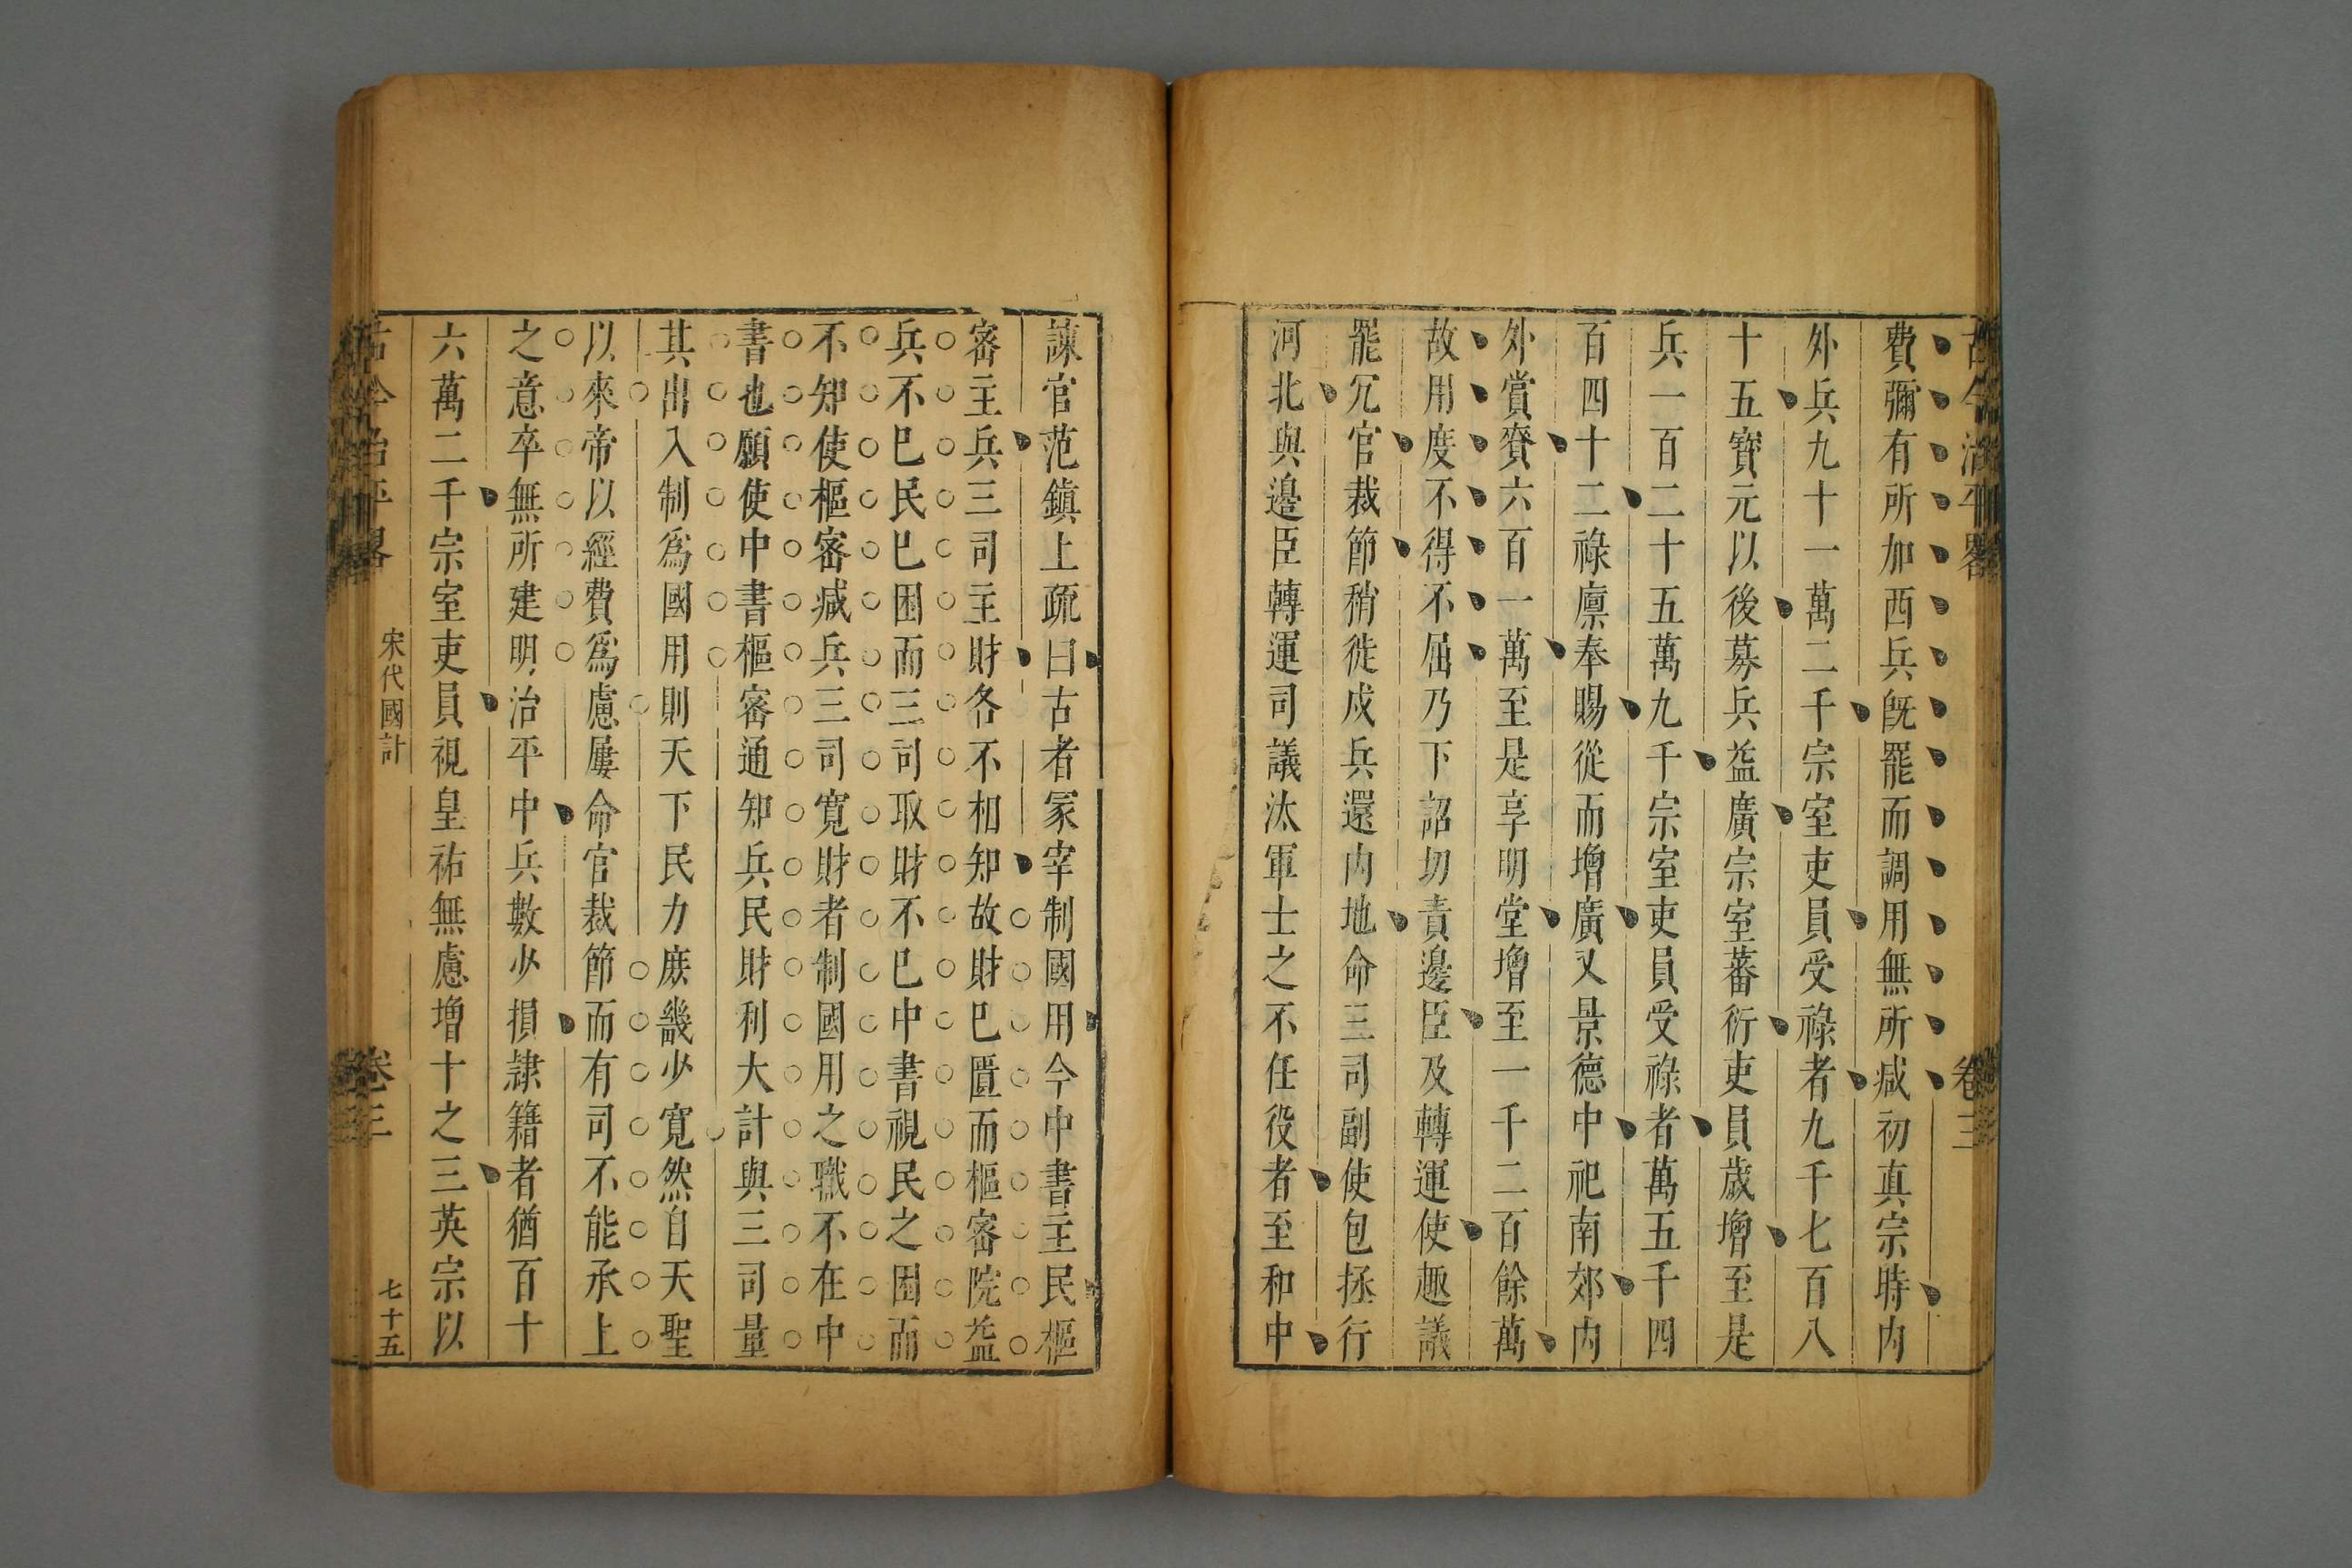 古今治平畧
卷三
費彌有所加西兵既罷而調用無所减初真宗時内
外兵九十一萬二千宗室吏員受祿者九千七百八
十五寳元以後募兵益廣宗室蕃衍吏員歲增至是
兵一百二十五萬九千宗室吏員受祿者萬五千四
百四十二祿廪奉賜從而增廣又景德中祀南郊内
外賞賚六百一萬至是享明堂增至一千二百餘萬
故用度不得不屈乃下詔切責邊臣及轉運使趣議
罷冗官裁節稍徙戍兵還内地命三司副使包拯行
河北與邊臣轉運司議汰軍士之不任役者至和中
諫官范鎮上疏曰古者冢宰制國用今中書主民樞
密主兵三司主財各不相知故財已匱而樞密院益
兵不已民已困而三司取財不已中書視民之困而
不知使樞密减兵三司寛財者制國用之職不在中
書也願使中書樞密通知兵民財利大計與三司量
其出入制爲國用則天下民力庶幾少寛然自天聖
以來帝以經費爲慮屢命官裁節而有司不能承上
之意卒無所建明治平中兵數少損隷籍者猶百十
六萬二千宗室吏員視皇祐無慮增十之三英宗以
古今治平畧
宋代國計
卷三
七十五